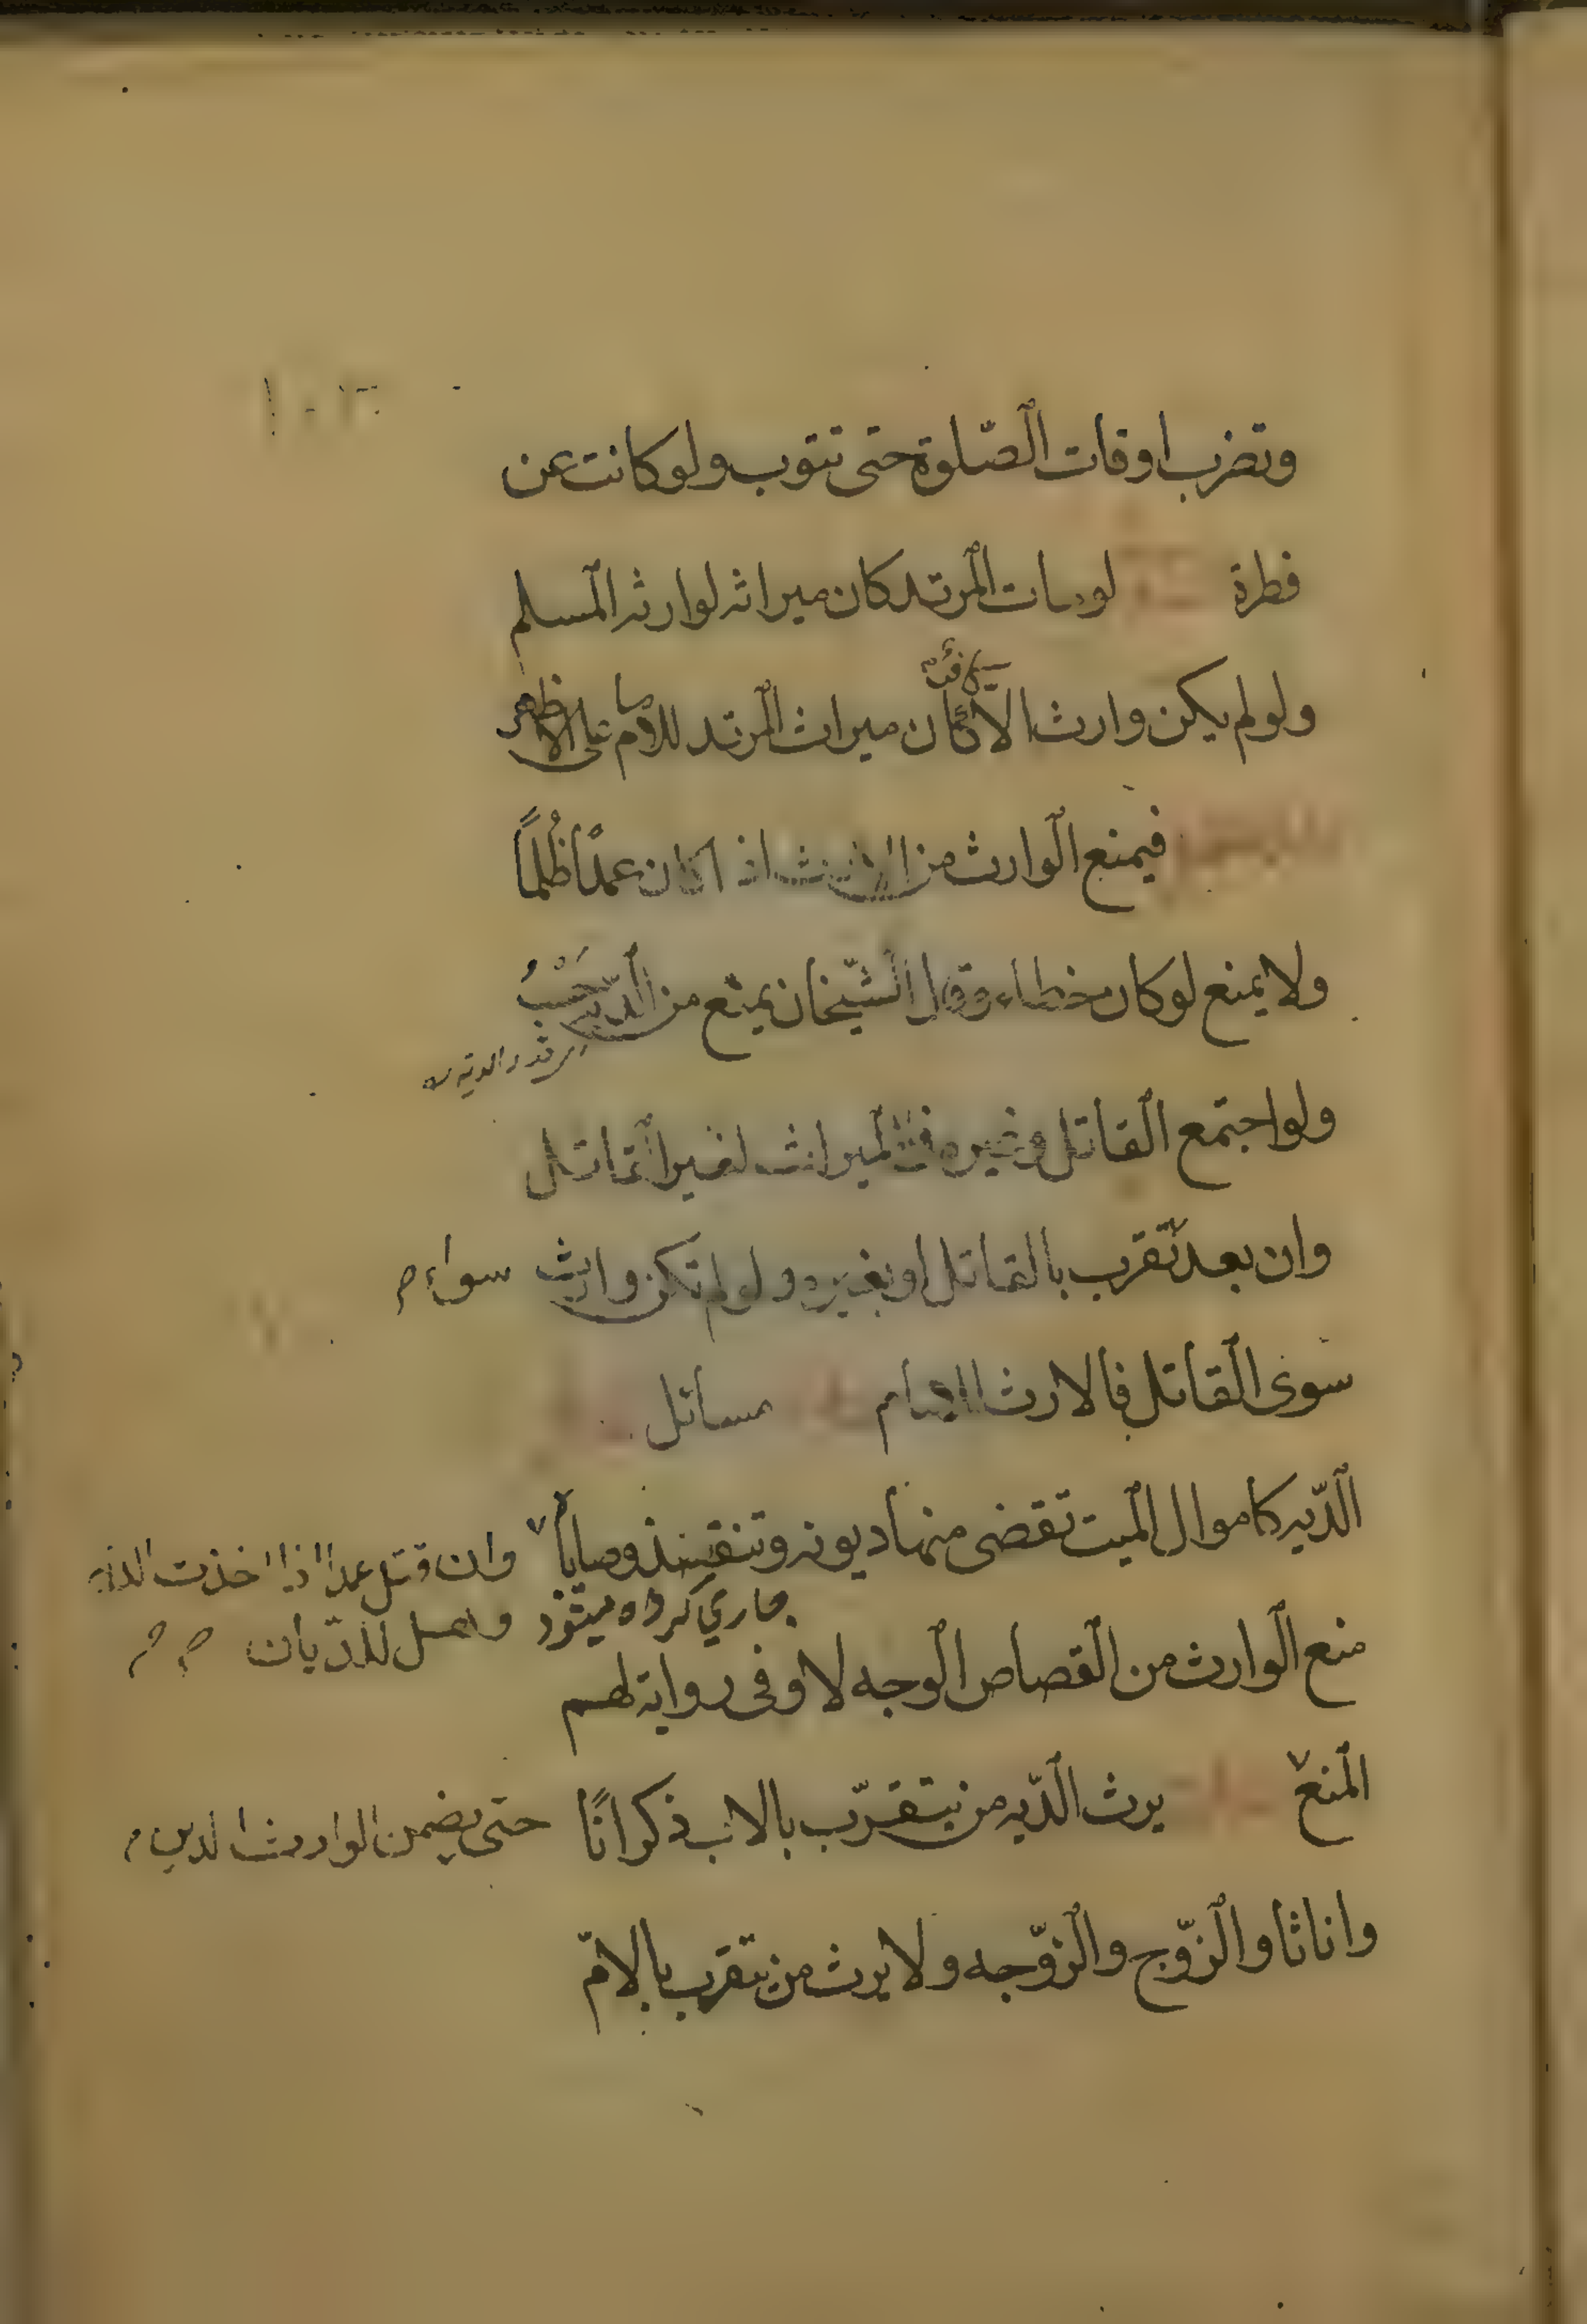 وتضرب اوقات الصّلوة حتى تتوب ولو كانت عن
فطرة لومات المرتد كان ميراثه لوارثه المسلم
ولو لم يكن وارث الّا كافر كان ميراث المرتد للامام على الاظهر
فيمنع الوارث من الارث اذا كان عمدًا ظُلمًا
ولا يمنع لو كان خطاء وقال الشّيخان يمنع من الدّيه حَسْبُ
ولو اجتمع القاتل وغيره فالميراث لغير القاتل
وان بعد تقرب بالقاتل او بغيره ولو لم تكن وارث
سواء
سوى القاتل فالارث للامام مسائل
الدّيه كاموال الميت تقضى منها ديونه وتنفيذ وصاياه
وان قتل عمدا اذا اخذت الديه
جاري كرده ميشود
وهل للديان
منع الوارث من القصاص الوجه لا وفى رواية لهم
المنع يرث الدّيه من يتقرّب بالاب ذكرانًا
حتى يضمن الوارث الدين
واناثا والزّوج والزّوجه ولا يرث من يتقرب بالامّ